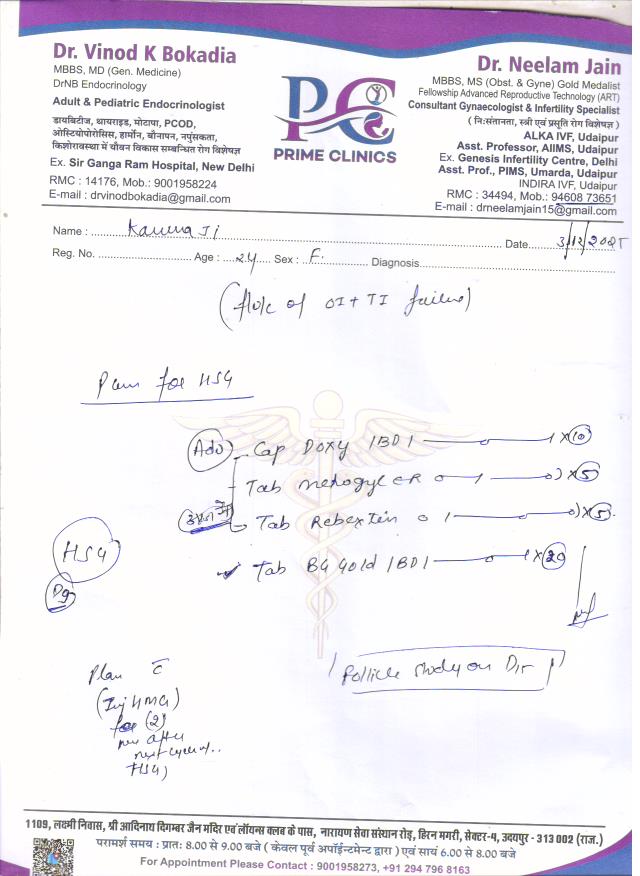 Dr. Vinod K Bokadia
MBBS, MD (Gen. Medicine)
DrNB Endocrinology
Adult & Pediatric Endocrinologist
डायबिटीज, थायराइड, मोटापा, PCOD,
ओस्टियोपोरोसिस, हार्मोन, बौनापन, नपुंसकता,
किशोरावस्था में यौवन विकास सम्बन्धित रोग विशेषज्ञ
Ex. Sir Ganga Ram Hospital, New Delhi
RMC : 14176, Mob.: 9001958224
E-mail : drvinodbokadia@gmail.com
PC
PRIME CLINICS
Dr. Neelam Jain
MBBS, MS (Obst. & Gyne) Gold Medalist
Fellowship Advanced Reproductive Technology (ART)
Consultant Gynaecologist & Infertility Specialist
( निःसंतानता, स्त्री एवं प्रसूति रोग विशेषज्ञ )
ALKA IVF, Udaipur
Asst. Professor, AIIMS, Udaipur
Ex. Genesis Infertility Centre, Delhi
Asst. Prof., PIMS, Umarda, Udaipur
INDIRA IVF, Udaipur
RMC : 34494, Mob.: 94608 73651
E-mail : drneelamjain15@gmail.com
Name : Ji Date 3/12/2025
Reg. No. Age : 24 Sex : F. Diagnosis
of OI + TI failure)
Plan for HSG
Adv Cap Doxy 1BD1 1 x 10
Tab Metrogyl ER 0 1 0) x 5
Tab 0 1 0) x 5
HSG
Tab BG Gold 1BD1 1 x 20
Plan c̄
(Inj HMG)
for (2)
after
next cycle of..
HSG)
Follicle study on D11
1109, लक्ष्मी निवास, श्री आदिनाथ दिगम्बर जैन मंदिर एवं लॉयन्स क्लब के पास, नारायण सेवा संस्थान रोड़, हिरन मगरी, सेक्टर-4, उदयपुर - 313 002 (राज.)
परामर्श समय : प्रातः 8.00 से 9.00 बजे ( केवल पूर्व अपॉईन्टमेन्ट द्वारा ) एवं सायं 6.00 से 8.00 बजे
For Appointment Please Contact : 9001958273, +91 294 796 8163